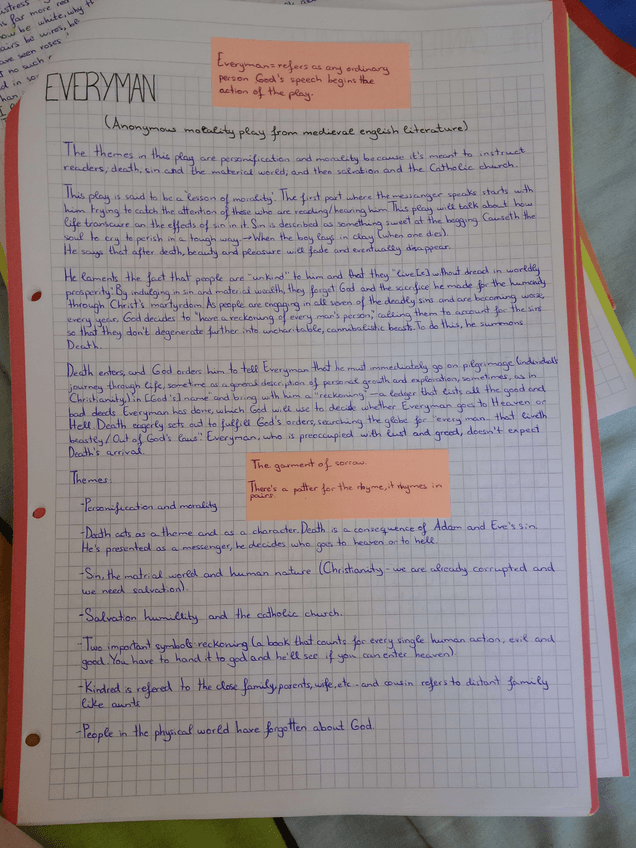 istress
is far more red
now be white, why
airs be wires, bl
ave seen roses
no such
d in so
han
EVERYMAN
Everyman=refers as any ordinary
person God's speech begins the
action of the play.
(Anonymous molality play from medieval english literature)
The themes in this play are personification and morality because it's meant to instruct
readers, death, sin and the material world, and then salvation and the Catholic church.
This play is said to be a "lesson of morality". The first part where the messanger speaks starts with
him trying to catch the attention of these who are reading/hearing him. This play will talk about how
life transcure an the effects of sin in it. Sin is described as something sweet at the bagging Causeth the
soul to cry to perish in a tough way → When the boy lays in clay (when one dies).
He says that after death, beauty and pleasure will fade and eventually disappear.
He laments the fact that people are "unkind" to him and that they "live[e] without dread in worldly
prosperity". By indulging in sin and material wealth, they forget God and the sacrifice he made for the humanity
through Christ's martyrdom. As people are engaging in all seven of the deadly sins and are becoming worse,
every year. God decides to "have a reckoning of every man's person," calling them to account for the sins
so that they don't degenerate further into uncharitable, cannibalistic beasts. To do this, he summons
Death.
Death enters, and God orders him to tell Everyman that he must immediately go on pilgrimage (individel's
journey through life, sometime as a general description of personal growth and exploration, sometimes, as in
Christianity) in [God's] name and bring with him a "reckoning"—a ledger that lists all the good and
bad deeds Everyman has done, which God will use to decide whether Everyman goes to Heaven or
Hell. Death eagerly sets out to fulfill God's orders, searching the globe for "every man... that liveth
beastley / Out of God's laws" Everyman, who is preoccupied with lust and greed, doesn't expect
Death's arrival.
The garment of sorrow.
There's a patter for the rhyme, it rhymes in
pairs.
Themes:
-Personification and morality
-Death acts as a theme and as a character. Death is a consequence of Adam and Eve's sin.
He's presented as a messenger, he decides who goes to heaven or to hell.
-Sin, the matrial world and human nature (Christianity - we are already corrupted and
we need salvation).
-Salvation humility and the catholic church.
-Two important symbols reckoning (a book that counts for every single human action, evil and
good. You have to hand it to god and he'll see if you can enter heaven)
-Kindred is refered to the close family, parents, wife, etc - and cousin refers to distant family
like aunt.
-People in the physical world have forgotten about God.